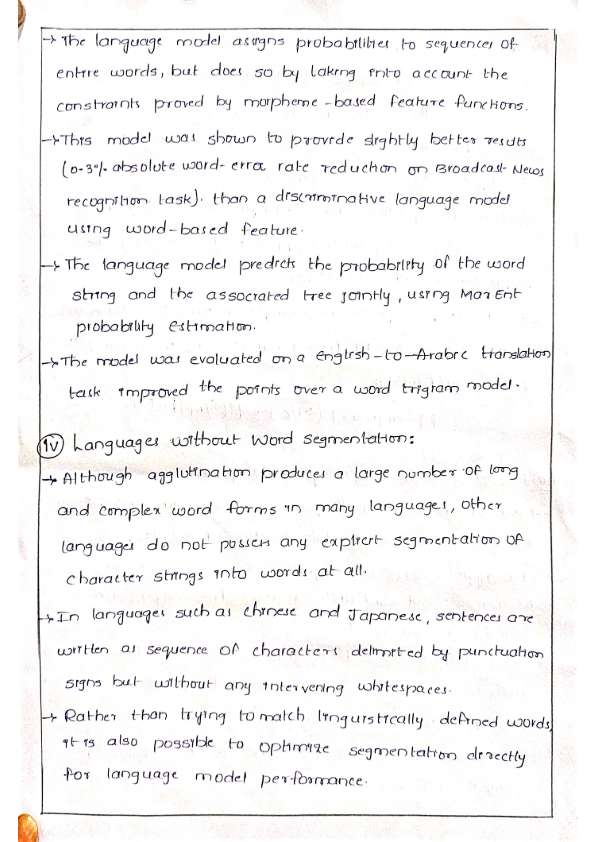 → The language model assigns probabilities to sequences of
entire words, but does so by taking into account the
constraints proved by morpheme-based feature functions.
→ This model was shown to provide slightly better results
(0.3% absolute word-error rate reduction on Broadcast-News
recognition task). than a discriminative language model
using word-based feature.
→ The language model predicts the probability of the word
string and the associated tree jointly, using MaxEnt
probability estimation.
→ The model was evaluated on a English-to-Arabic translation
task improved the points over a word trigram model.
iv Languages without Word Segmentation:
→ Although agglutination produces a large number of long
and complex word forms in many languages, other
languages do not possess any explicit segmentation of
character strings into words at all.
→ In languages such as Chinese and Japanese, sentences are
written as sequence of characters delimited by punctuation
signs but without any intervening whitespaces.
→ Rather than trying to match linguistically defined words,
it is also possible to optimize segmentation directly
for language model performance.